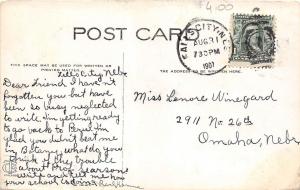 $4.00
POST CARD
FALLS CITY, NEB.
AUG 31
7 30 PM
1907
THIS SPACE MAY BE USED FOR WRITTEN OR
PRINTED MATTER
THE ADDRESS TO BE WRITTEN
Falls City, Nebr.
Dear Friend I haven't
forgotten you but have
been so busy neglected
to write. Im getting ready
to go back to Peru. I'm glad
you didn't beat me
in Botany. What do you
think of the trouble
about Prof. Searson.
Write and tell me how
your school is doing.
Miss Lenore Winegard
2911 No. 26th
Omaha, Nebr